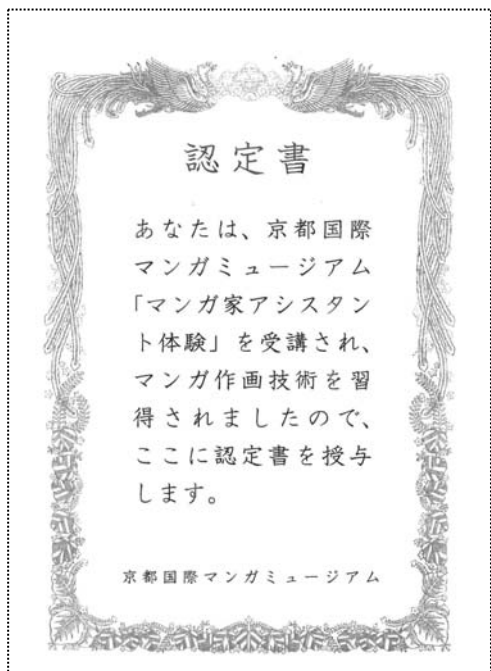 認定書
あなたは、京都国際
マンガミュージアム
「マンガ家アシスタン
ト体験」を受講され、
マンガ作画技術を習
得されましたので、
ここに認定書を授与
します。
京都国際マンガミュージアム